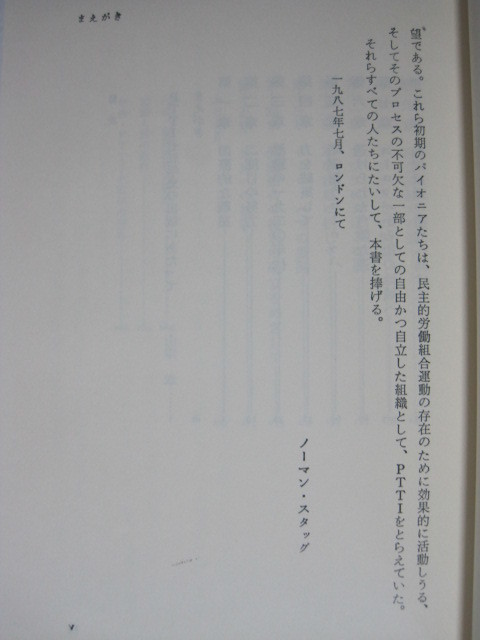 まえがき
望である。これら初期のパイオニアたちは、民主的労働組合運動の存在のために効果的に活動しうる、
そしてそのプロセスの不可欠な一部としての自由かつ自立した組織として、PTTIをとらえていた。
それらすべての人たちにたいして、本書を捧げる。
一九八七年七月、ロンドンにて
ノーマン・スタッグ
v